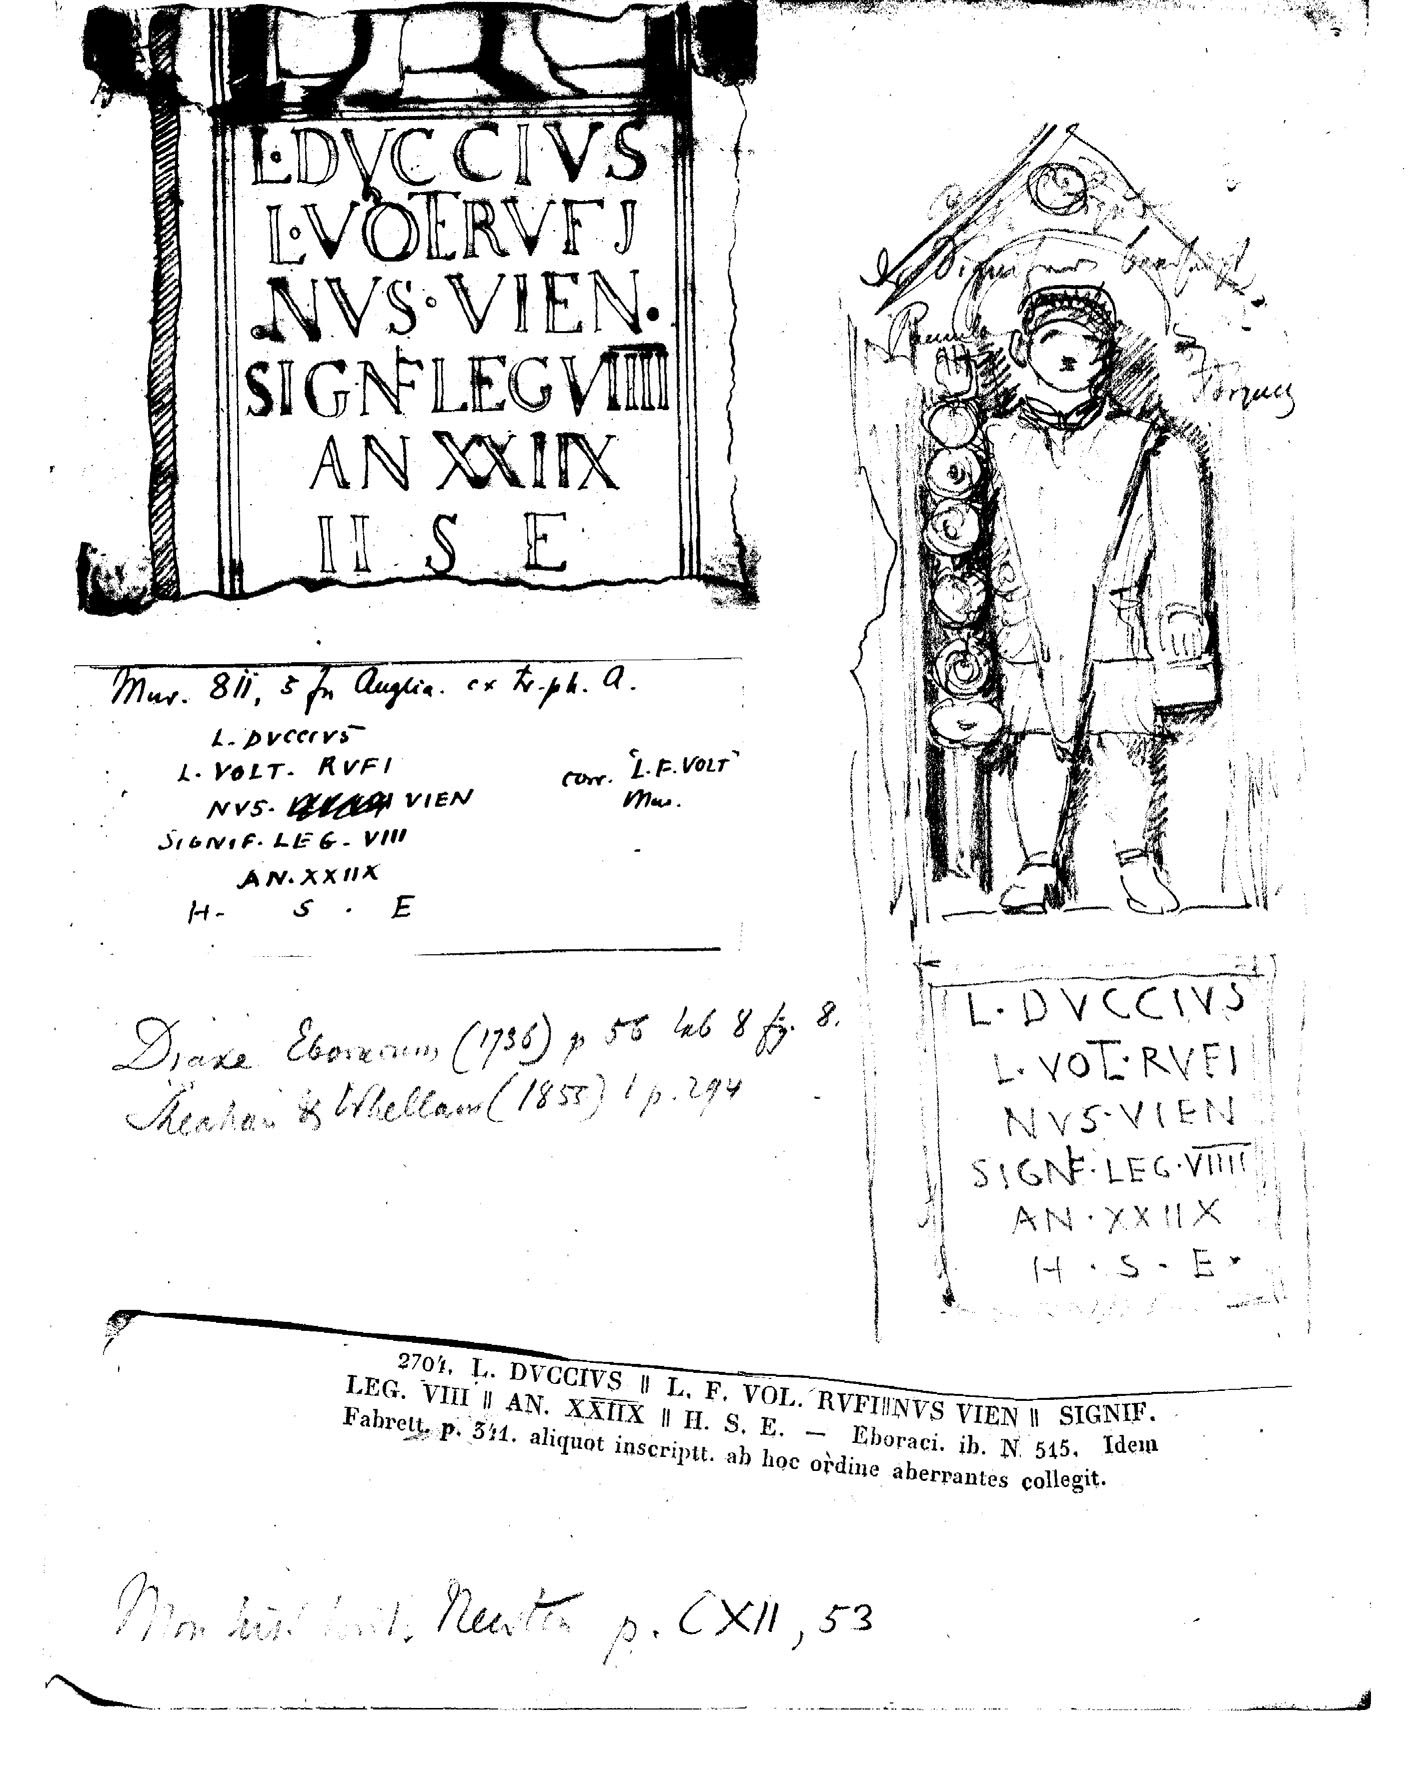 L·DVCCIVS
L·VOLT RVFI
NVS·VIEN·
SIGNIF LEG VIIII
AN XXIIX
II S E
Mur. 811, 5 in Anglia. ex
L. DVCCIVS
L. VOLT. RVFI
NVS. VIEN
SIGNIF. LEG. VIII
AN. XXIIX
H. S. E
corr. "L.F.VOLT"
Mur.
Drake Eboracum (1736) p 56 tab 8 fg. 8.
Sheahan & Whellan (1855) 1 p. 294
Torques
L·DVCCIVS
L·VOLT·RVFI
NVS·VIEN
SIGNIF·LEG·VIIII
AN·XXIIX
H·S·E
2704. L. DVCCIVS || L. F. VOL. RVFI||NVS VIEN || SIGNIF.
LEG. VIII || AN. XXIIX || H. S. E. — Eboraci. ib. N 515. Idem
Fabrett. p. 341. aliquot inscriptt. ab hoc ordine aberrantes collegit.
Mon hist brit. Newton p. CXII, 53